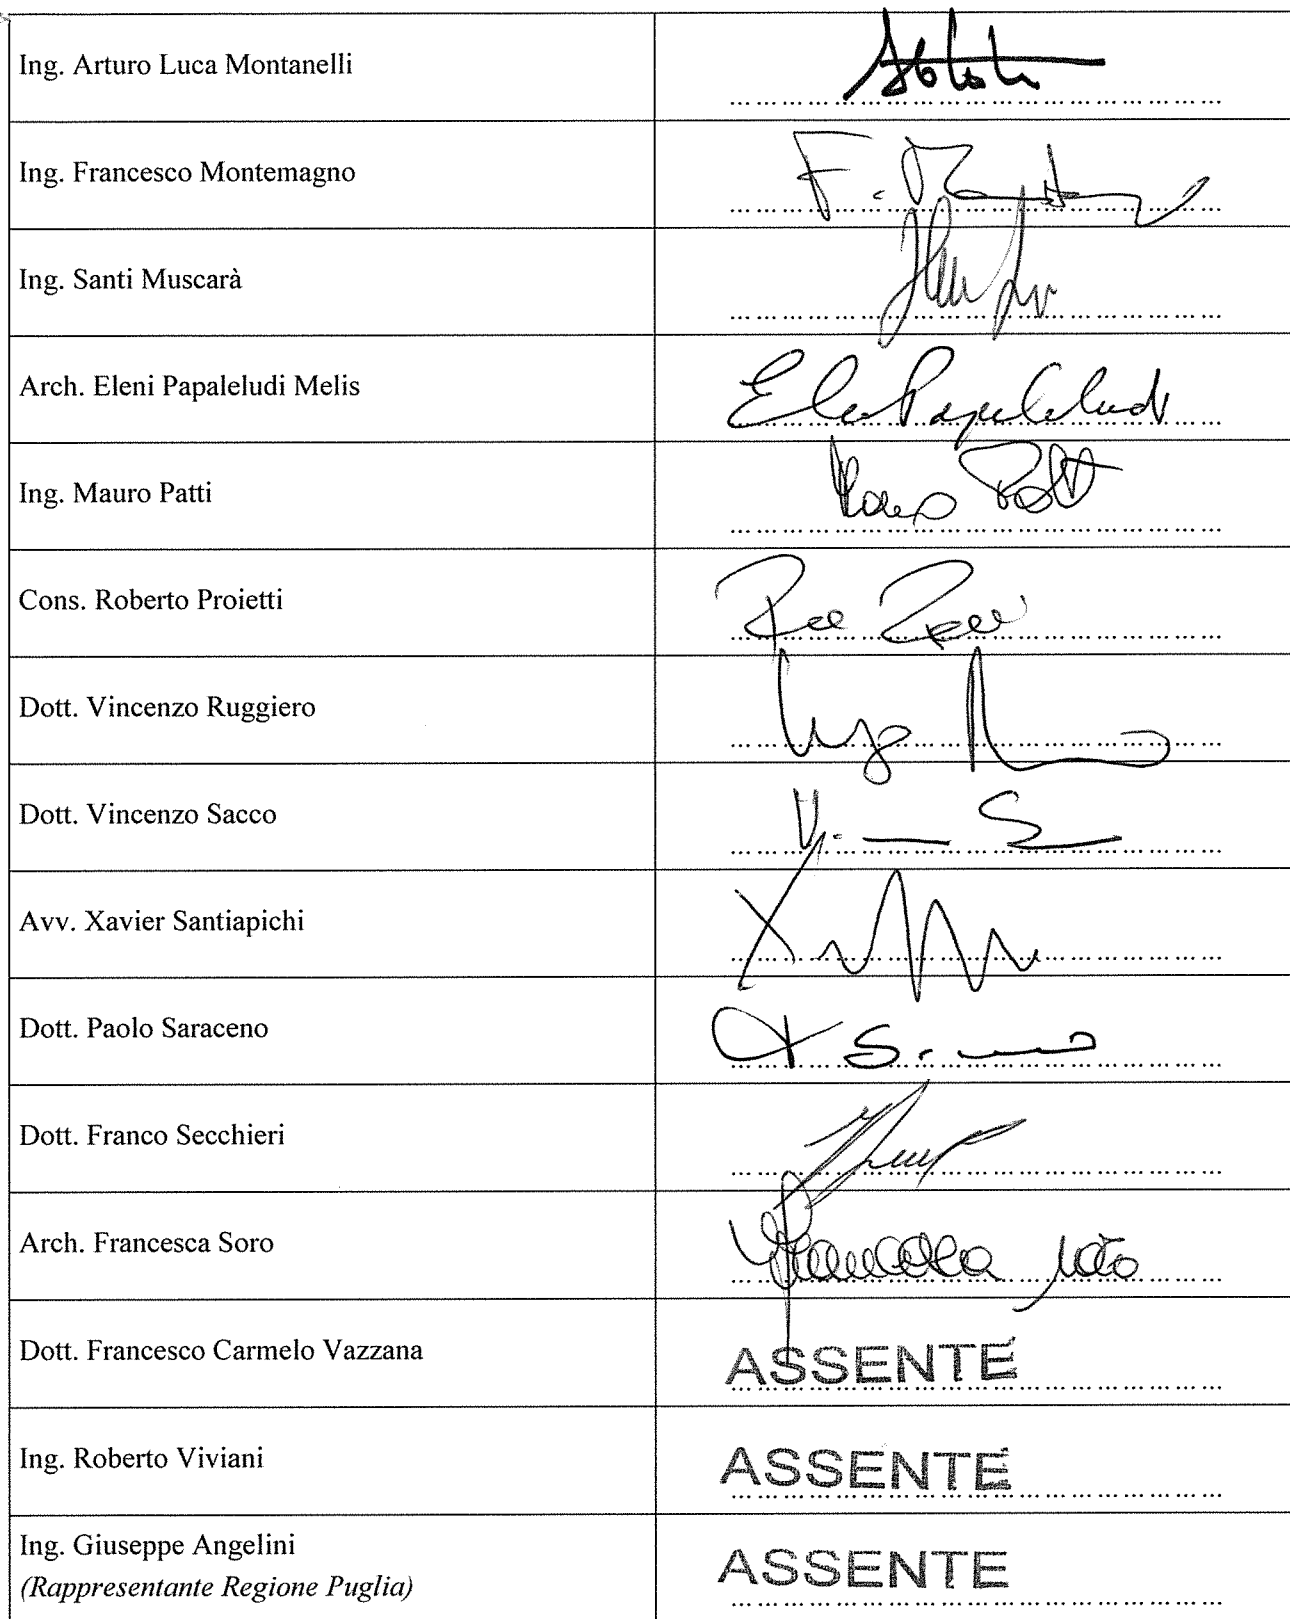 Ing. Arturo Luca Montanelli
Ing. Francesco Montemagno
F.
Ing. Santi Muscarà
Arch. Eleni Papaleludi Melis
Ing. Mauro Patti
Cons. Roberto Proietti
Dott. Vincenzo Ruggiero
Dott. Vincenzo Sacco
Avv. Xavier Santiapichi
Dott. Paolo Saraceno
Dott. Franco Secchieri
Arch. Francesca Soro
Francesca Soro
Dott. Francesco Carmelo Vazzana
ASSENTE
Ing. Roberto Viviani
ASSENTE
Ing. Giuseppe Angelini
(Rappresentante Regione Puglia)
ASSENTE